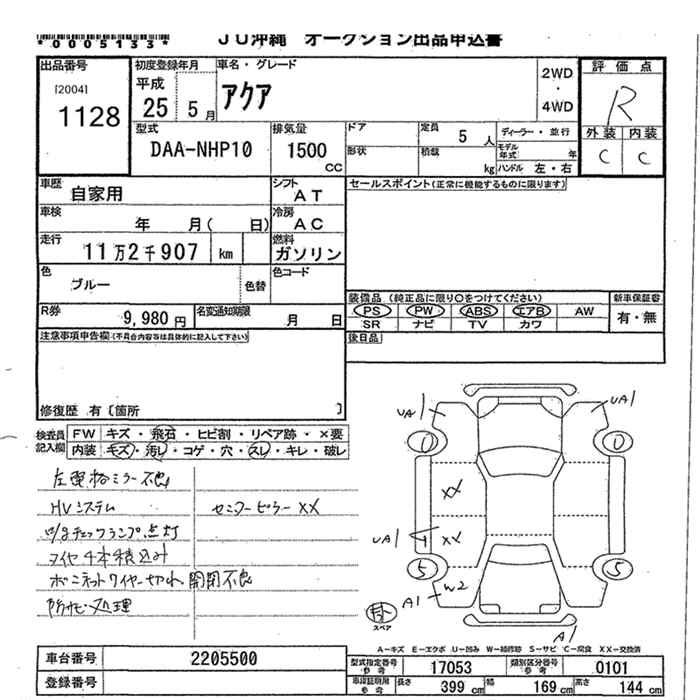 *0005133*
JU沖縄 オークション出品申込書
出品番号
[2004]
1128
初度登録年月
平成
25 5月
車名・グレード
アクア
2WD
・
4WD
評価点
R
外装 内装
C C
型式
DAA-NHP10
排気量
1500
CC
ドア
形状
定員 5 人
積載 kg
ディーラー・並行
モデル年式 年
ハンドル 左・右
車歴
自家用
シフト
AT
車検
年 月( 日)
冷房
AC
走行
11万2千907 km
燃料
ガソリン
色
ブルー
色替
色コード
R券
9,980円
名変通知期限
月 日
セールスポイント(正常に機能するものに限ります)
装備品 (純正品に限り○をつけてください)
PS PW ABS エアB AW
SR ナビ TV カワ
新車保証書
有・無
後日品
注意事項申告欄(不具合内容等は具体的に記入して下さい)
修復歴 有〔箇所 〕
検査員記入欄
FW キズ・飛石・ヒビ割・リペア跡・×要
内装 キズ・汚レ・コゲ・穴・スレ・キレ・破レ
左電格ミラー不良
HVシステム
センターピラーXX
チェックランプ点灯
タイヤ4本積込み
ボンネットワイヤー切れ、開閉不良
防サビ処理
UA1
UA1
0
0
XX
UA1
XX
5
5
W2
A1
スペア
A1
A-キズ E-エクボ U-凹み W-補修跡 S-サビ C-腐食 XX-交換済
車台番号 2205500
登録番号
型式指定番号
参考
17053
類別区分番号
参考
0101
車検証明用
参考
長さ 399 cm 幅 169 cm 高さ 144 cm